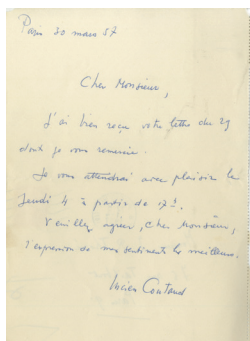 Paris 30 mars 57
Cher Monsieur,
J'ai bien reçu votre lettre du 29
dont je vous remercie.
Je vous attendrai avec plaisir le
Jeudi 4 à partir de 17h.
Veuillez agréer, Cher Monsieur,
l'expression de mes sentiments les meilleurs.
Lucien Coutaud